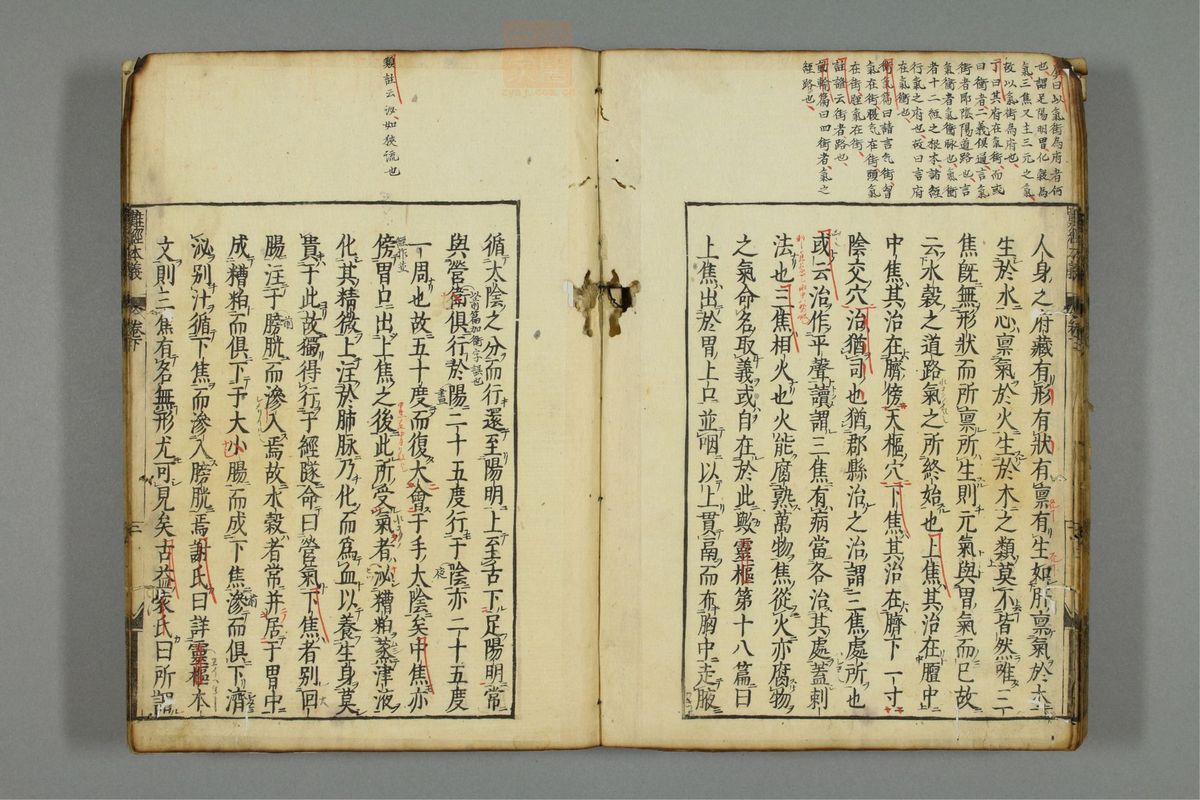 也謂足陽明胃化穀為
氣三焦又主三元之氣
故以氣街為府也
丁曰其府在氣街而或
曰衝者二義俱通言氣
街者即陰陽道路也言
氣衝者氣衝脉也氣街
者十二經之根本諸經
行氣之府也故曰言府
在氣衝也
衛氣篇曰請言气街胷
氣在街腹气在街頭氣
在街脛氣在街
註證云街者路也
動輸篇曰四街者氣之
徑路也
人身之府藏有形有狀有禀有生如肝禀氣於木
生於水心禀氣於火生於木之類莫不皆然唯三
焦既無形狀而所禀所生則元氣與胃氣而已故
云水穀之道路氣之所終始也上焦其治在膻中
中焦其治在臍傍天樞穴下焦其治在臍下一寸
陰交穴治猶司也猶郡縣治之治謂三焦處所也
或云治作平聲讀謂三焦有病當各治其處蓋刺
法也三焦相火也火能腐熟萬物焦從火亦腐物
之氣命名取義或自在於此歟靈樞第十八篇曰
上焦出於胃上口並咽以上貫鬲而布胸中走腋
類註云泌如狹流也
循大陰之分而行還至陽明上至舌下足陽明常
與營衛俱行於陽二十五度行于陰亦二十五度
一周也故五十度而復大會于手大陰矣中焦亦
傍胃口出上焦之後此所受氣者泌糟粕蒸津液
化其精微上注於肺脉乃化而為血以養生身莫
貴于此故獨得行于經隧命曰營氣下焦者別回
腸注于膀胱而滲入焉故水穀者常并居于胃中
成糟粕而俱下于大小腸而成下焦滲而俱下濟
泌別汁循下焦而滲入膀胱焉謝氏曰詳靈樞本
文則三焦有名無形尤可見矣古益袁氏曰所謂
難經本義
卷下